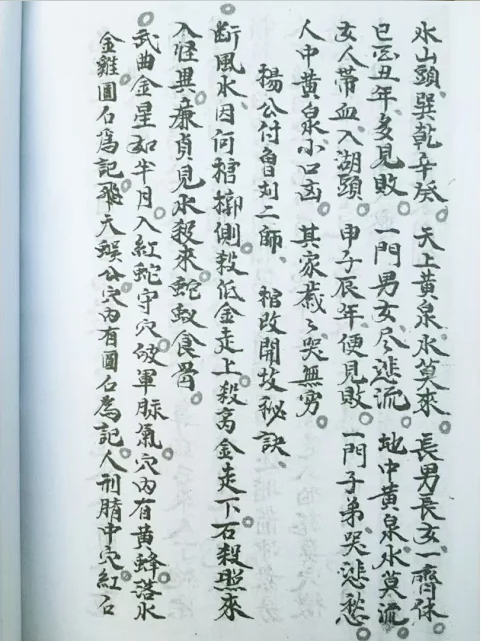 水山頭、巽乾辛癸。天上黃泉水莫來。長男長女一齊休。
巳酉丑年多見敗。一門男女尽悲流。地中黃泉水莫流。
女人帶血入湖頭。申子辰年便見敗。一門子弟哭悲愁。
人中黃泉小口凶。其家歲々哭無穷。
楊公付曾刘二師、棺改開故秘訣、
断風水、因何棺槨側、殺低金走上。殺高金走下。石殺照來
入怪異。廉貞見水殺來。蛇蚁食骨。
武曲金星如半月。入紅蛇守穴。破軍脉氣。穴內有黃蜂落水。
金雞圓石為記。飛天蜈公。穴內有圓石為記。人刑腈中穴紅石